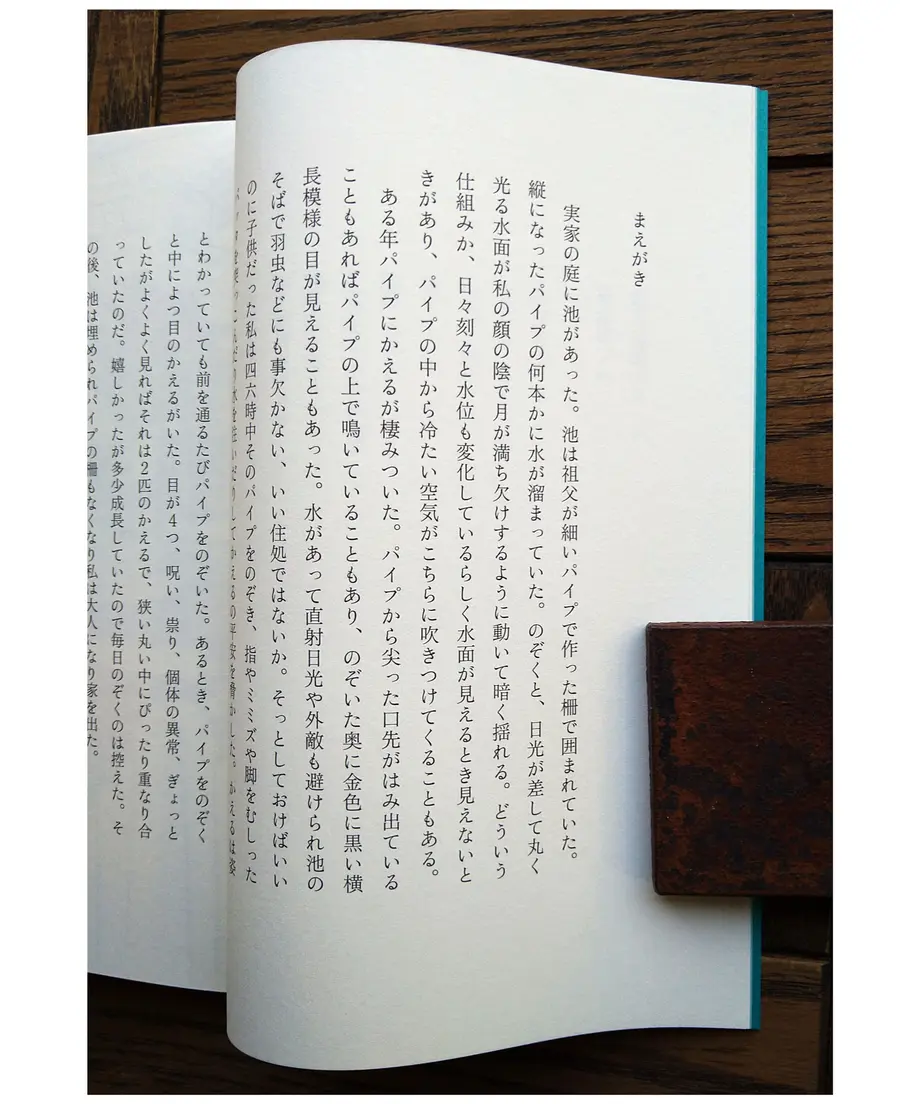 まえがき
実家の庭に池があった。池は祖父が細いパイプで作った柵で囲まれていた。
縦になったパイプの何本かに水が溜まっていた。のぞくと、日光が差して丸く
光る水面が私の顔の陰で月が満ち欠けするように動いて暗く揺れる。どういう
仕組みか、日々刻々と水位も変化しているらしく水面が見えるとき見えないと
きがあり、パイプの中から冷たい空気がこちらに吹きつけてくることもある。
ある年パイプにかえるが棲みついた。パイプから尖った口先がはみ出ている
こともあればパイプの上で鳴いていることもあり、のぞいた奥に金色に黒い横
長模様の目が見えることもあった。水があって直射日光や外敵も避けられ池の
そばで羽虫などにも事欠かない、いい住処ではないか。そっとしておけばいい
のに子供だった私は四六時中そのパイプをのぞき、指やミミズや脚をむしった
バッタを突っこんだり水を注いだりしてかえるの平安を脅かした。かえるは姿
とわかっていても前を通るたびパイプをのぞいた。あるとき、パイプをのぞく
と中によつ目のかえるがいた。目が4つ、呪い、祟り、個体の異常、ぎょっと
したがよくよく見ればそれは2匹のかえるで、狭い丸い中にぴったり重なり合
っていたのだ。嬉しかったが多少成長していたので毎日のぞくのは控えた。そ
の後、池は埋められパイプの柵もなくなり私は大人になり家を出た。